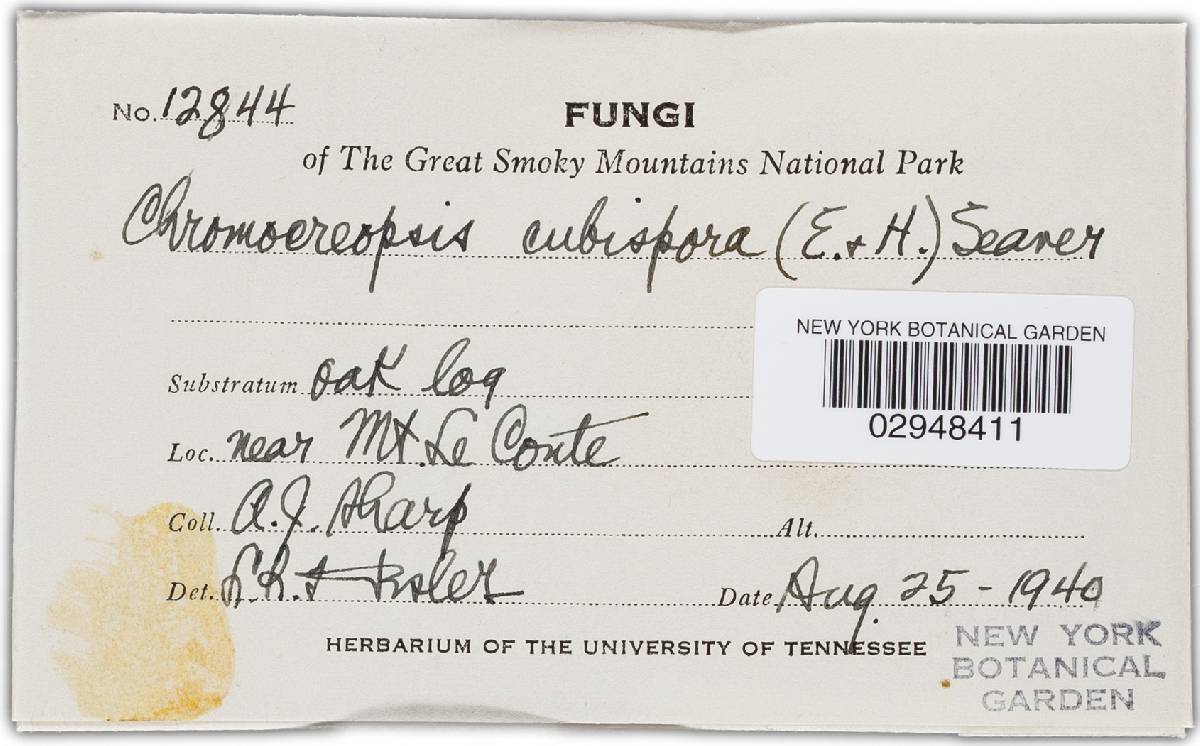 No. 12844
FUNGI
of The Great Smoky Mountains National Park
Chromocreopsis cubispora (E. & H.) Seaver
NEW YORK BOTANICAL GARDEN
02948411
Substratum oak log
Loc. near Mt. Le Conte
Coll. A.J. Sharp
Alt.
Det. L.R.
Date Aug. 25 - 1940
HERBARIUM OF THE UNIVERSITY OF TENNESSEE
NEW YORK
BOTANICAL
GARDEN